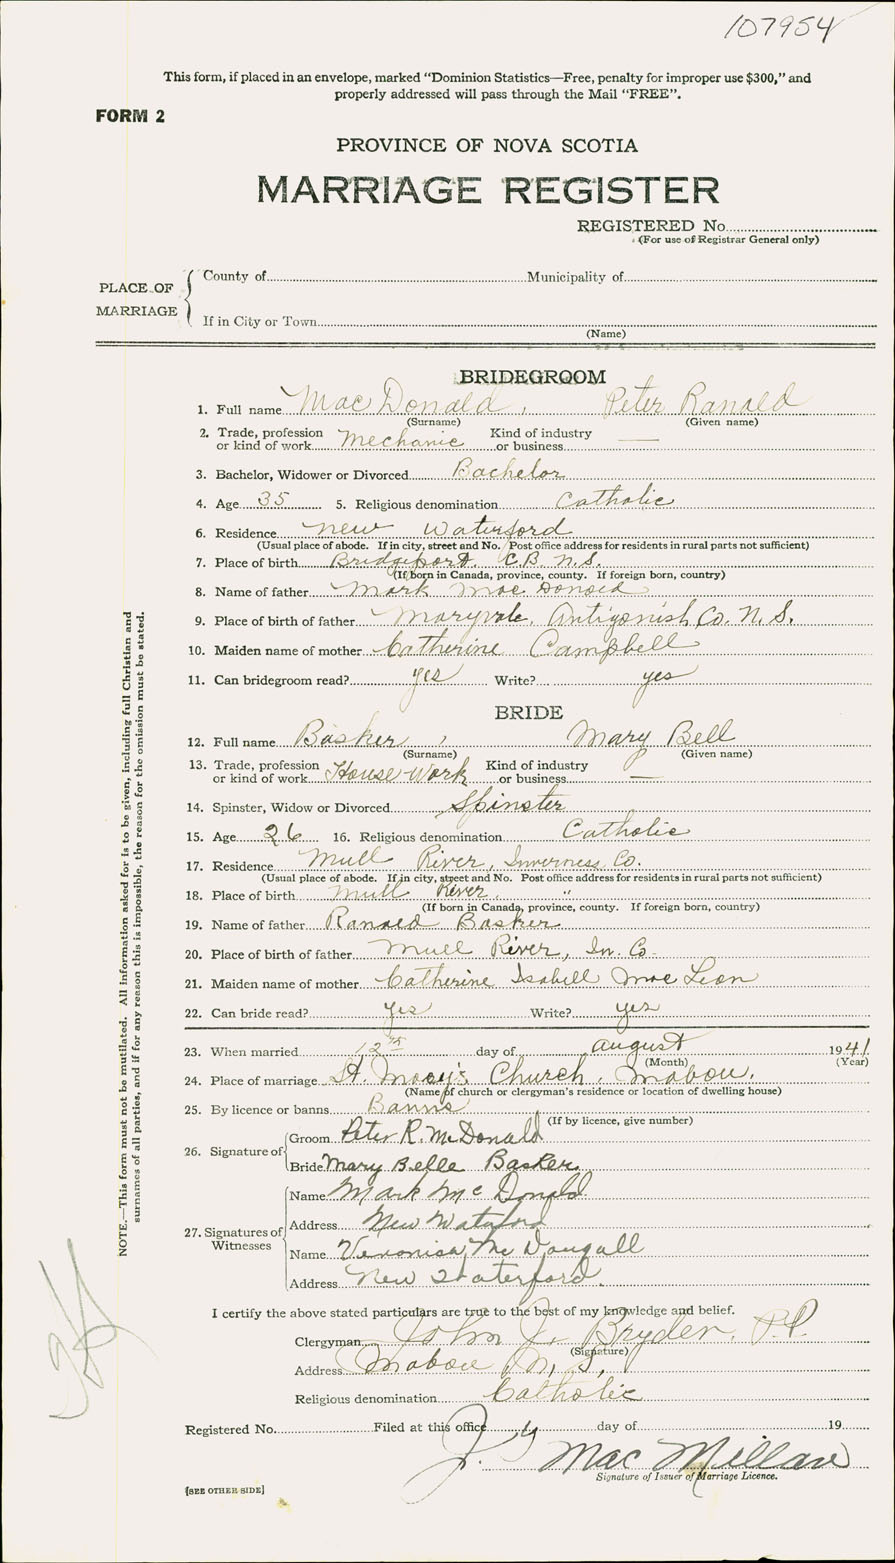 107954
This form, if placed in an envelope, marked “Dominion Statistics—Free, penalty for improper use $300,” and
properly addressed will pass through the Mail “FREE”.
FORM 2
PROVINCE OF NOVA SCOTIA
MARRIAGE REGISTER
REGISTERED No.
(For use of Registrar General only)
PLACE OF MARRIAGE
County of Municipality of
If in City or Town
(Name)
BRIDEGROOM
1. Full name Mac Donald, Peter Ranald
(Surname) (Given name)
2. Trade, profession or kind of work Mechanic Kind of industry or business —
3. Bachelor, Widower or Divorced Bachelor
4. Age 35 5. Religious denomination Catholic
6. Residence New Waterford
(Usual place of abode. If in city, street and No. Post office address for residents in rural parts not sufficient)
7. Place of birth Bridgeport C.B. N.S.
(If born in Canada, province, county. If foreign born, country)
8. Name of father Mark Mac Donald
9. Place of birth of father Maryvale, Antigonish Co. N.S.
10. Maiden name of mother Catherine Campbell
11. Can bridegroom read? yes Write? yes
BRIDE
12. Full name Basker, Mary Bell
(Surname) (Given name)
13. Trade, profession or kind of work House Work Kind of industry or business —
14. Spinster, Widow or Divorced Spinster
15. Age 26 16. Religious denomination Catholic
17. Residence Mull River, Inverness Co.
(Usual place of abode. If in city, street and No. Post office address for residents in rural parts not sufficient)
18. Place of birth Mull River "
(If born in Canada, province, county. If foreign born, country)
19. Name of father Ranald Basker
20. Place of birth of father Mull River, In. Co.
21. Maiden name of mother Catherine Isabell Mac Lean
22. Can bride read? yes Write? yes
23. When married 12th day of August 1941
(Month) (Year)
24. Place of marriage St. Mary's Church, Mabou.
(Name of church or clergyman's residence or location of dwelling house)
25. By licence or banns Banns
(If by licence, give number)
26. Signature of Groom Peter R. McDonald
Bride Mary Belle Basker
27. Signatures of Witnesses
Name Mark Mc Donald
Address New Waterford
Name Veronica Mc Dougall
Address New Waterford
I certify the above stated particulars are true to the best of my knowledge and belief.
Clergyman John J. Bryden, P.P.
(Signature)
Address Mabou, N.S.
Religious denomination Catholic
Registered No. Filed at this office day of 19
Mac Millan
Signature of Issuer of Marriage Licence.
[SEE OTHER SIDE]
NOTE.—This form must not be mutilated. All information asked for is to be given, including full Christian and
surnames of all parties, and if for any reason this is impossible, the reason for the omission must be stated.